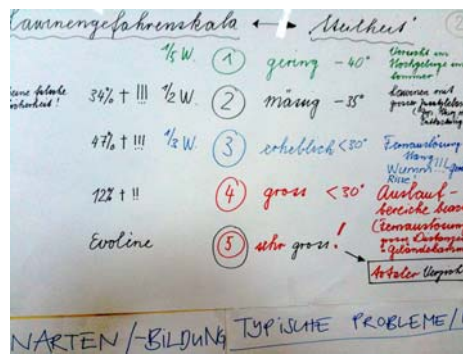 Lawinengefahrenskala ⟷ Steilheit
1/5 W. 1 gering -40° Vorsicht im Hochgebirge im Sommer
keine falsche Sicherheit! 34% † !!! 1/2 W. 2 mässig -35° Lawinen mit
47% † !!! 1/3 W. 3 erheblich <30° Fernauslösung
Wumm!!!
Risse!
12% † !! 4 gross <30° Auslauf-
bereiche
(Fernauslösung
Evoline 5 sehr gross!
totaler
NARTEN/-BILDUNG TYPISCHE PROBLEME/